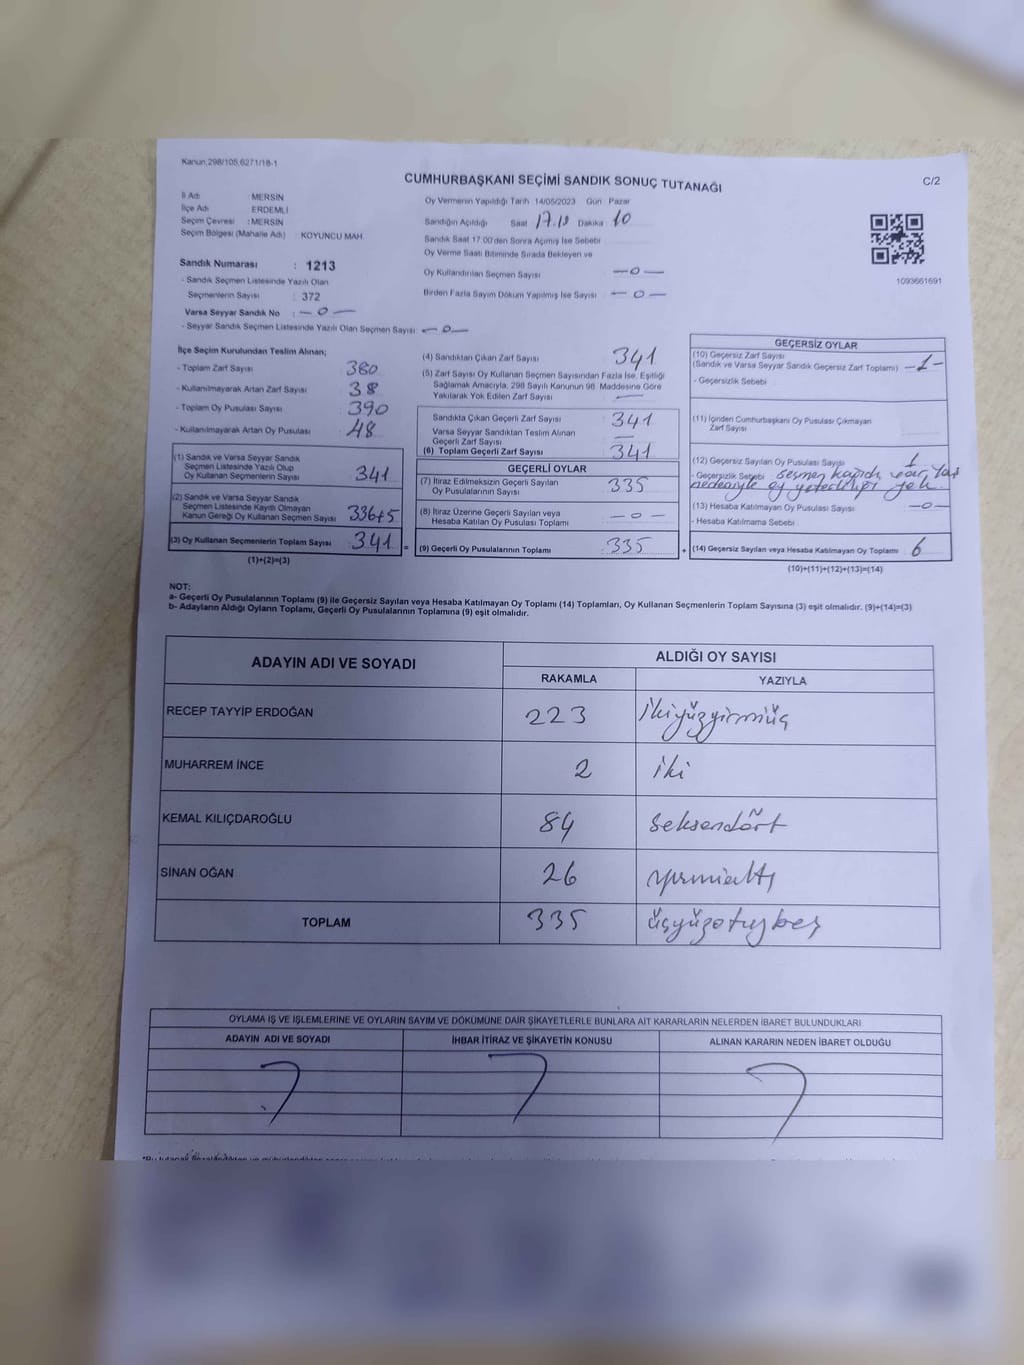 Kanun,298/105,6271/18-1
CUMHURBAŞKANI SEÇİMİ SANDIK SONUÇ TUTANAĞI
C/2
İl Adı : MERSİN
İlçe Adı : ERDEMLİ
Seçim Çevresi : MERSİN
Seçim Bölgesi (Mahalle Adı) KOYUNCU MAH.
Sandık Numarası : 1213
- Sandık Seçmen Listesinde Yazılı Olan
Seçmenlerin Sayısı : 372
Varsa Seyyar Sandık No : - 0 -
- Seyyar Sandık Seçmen Listesinde Yazılı Olan Seçmen Sayısı: - 0 -
Oy Vermenin Yapıldığı Tarih 14/05/2023 Gün Pazar
Sandığın Açıldığı Saat 17.10 Dakika 10
Sandık Saat 17:00'den Sonra Açılmış İse Sebebi
Oy Verme Saati Bitiminde Sırada Bekleyen ve
Oy Kullandırılan Seçmen Sayısı - 0 -
Birden Fazla Sayım Döküm Yapılmış İse Sayısı : - 0 -
1093661691
İlçe Seçim Kurulundan Teslim Alınan;
- Toplam Zarf Sayısı 380
- Kullanılmayarak Artan Zarf Sayısı 38
- Toplam Oy Pusulası Sayısı 390
- Kullanılmayarak Artan Oy Pusulası 48
(1) Sandık ve Varsa Seyyar Sandık
Seçmen Listesinde Yazılı Olup
Oy Kullanan Seçmenlerin Sayısı 341
(2) Sandık ve Varsa Seyyar Sandık
Seçmen Listesinde Kayıtlı Olmayan
Kanun Gereği Oy Kullanan Seçmen Sayısı 336+5
(3) Oy Kullanan Seçmenlerin Toplam Sayısı : 341 =
(1)+(2)=(3)
(4) Sandıktan Çıkan Zarf Sayısı 341
(5) Zarf Sayısı Oy Kullanan Seçmen Sayısından Fazla İse, Eşitliği
Sağlamak Amacıyla, 298 Sayılı Kanunun 98. Maddesine Göre
Yakılarak Yok Edilen Zarf Sayısı -
Sandıkta Çıkan Geçerli Zarf Sayısı : 341
Varsa Seyyar Sandıktan Teslim Alınan
Geçerli Zarf Sayısı -
(6) Toplam Geçerli Zarf Sayısı : 341
GEÇERLİ OYLAR
(7) İtiraz Edilmeksizin Geçerli Sayılan
Oy Pusulalarının Sayısı : 335
(8) İtiraz Üzerine Geçerli Sayılan veya
Hesaba Katılan Oy Pusulası Toplamı : - 0 -
(9) Geçerli Oy Pusulalarının Toplamı : 335 +
GEÇERSİZ OYLAR
(10) Geçersiz Zarf Sayısı
(Sandık ve Varsa Seyyar Sandık Geçersiz Zarf Toplamı) -1-
- Geçersizlik Sebebi
(11) İçinden Cumhurbaşkanı Oy Pusulası Çıkmayan
Zarf Sayısı
(12) Geçersiz Sayılan Oy Pusulası Sayısı 1
- Geçersizlik Sebebi seçmen kaydı var,
nedeniyle oy yeterliliği yok.
(13) Hesaba Katılmayan Oy Pusulası Sayısı - 0 -
- Hesaba Katılmama Sebebi
(14) Geçersiz Sayılan veya Hesaba Katılmayan Oy Toplamı : 6
(10)+(11)+(12)+(13)=(14)
NOT:
a- Geçerli Oy Pusulalarının Toplamı (9) ile Geçersiz Sayılan veya Hesaba Katılmayan Oy Toplamı (14) Toplamları, Oy Kullanan Seçmenlerin Toplam Sayısına (3) eşit olmalıdır. (9)+(14)=(3)
b- Adayların Aldığı Oyların Toplamı, Geçerli Oy Pusulalarının Toplamına (9) eşit olmalıdır.
ADAYIN ADI VE SOYADI ALDIĞI OY SAYISI
RAKAMLA YAZIYLA
RECEP TAYYİP ERDOĞAN 223 ikiyüzyirmiüç
MUHARREM İNCE 2 iki
KEMAL KILIÇDAROĞLU 84 seksendört
SİNAN OĞAN 26 yirmialtı
TOPLAM 335 üçyüzotuzbeş
OYLAMA İŞ VE İŞLEMLERİNE VE OYLARIN SAYIM VE DÖKÜMÜNE DAİR ŞİKAYETLERLE BUNLARA AİT KARARLARIN NELERDEN İBARET BULUNDUKLARI
ADAYIN ADI VE SOYADI İHBAR İTİRAZ VE ŞİKAYETİN KONUSU ALINAN KARARIN NEDEN İBARET OLDUĞU